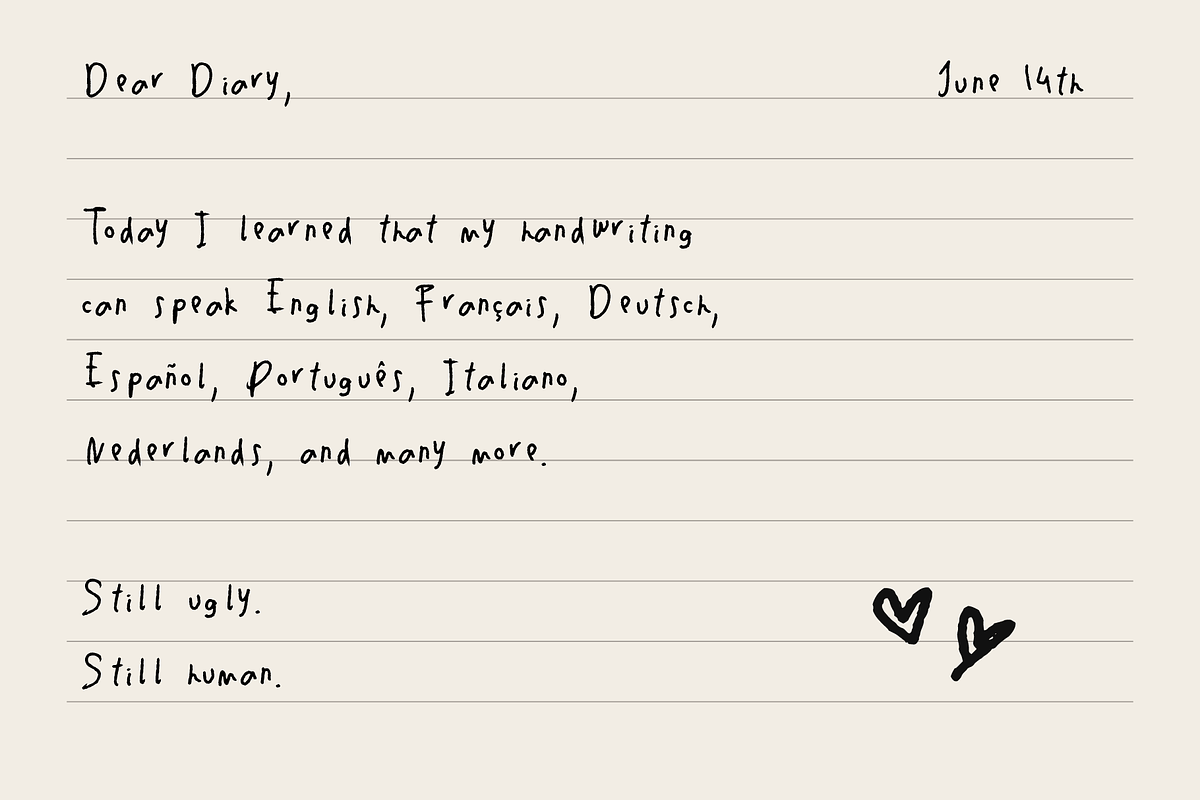 Dear Diary, June 14th
Today I learned that my handwriting
can speak English, Français, Deutsch,
Español, Português, Italiano,
Nederlands, and many more.
Still ugly.
Still human.